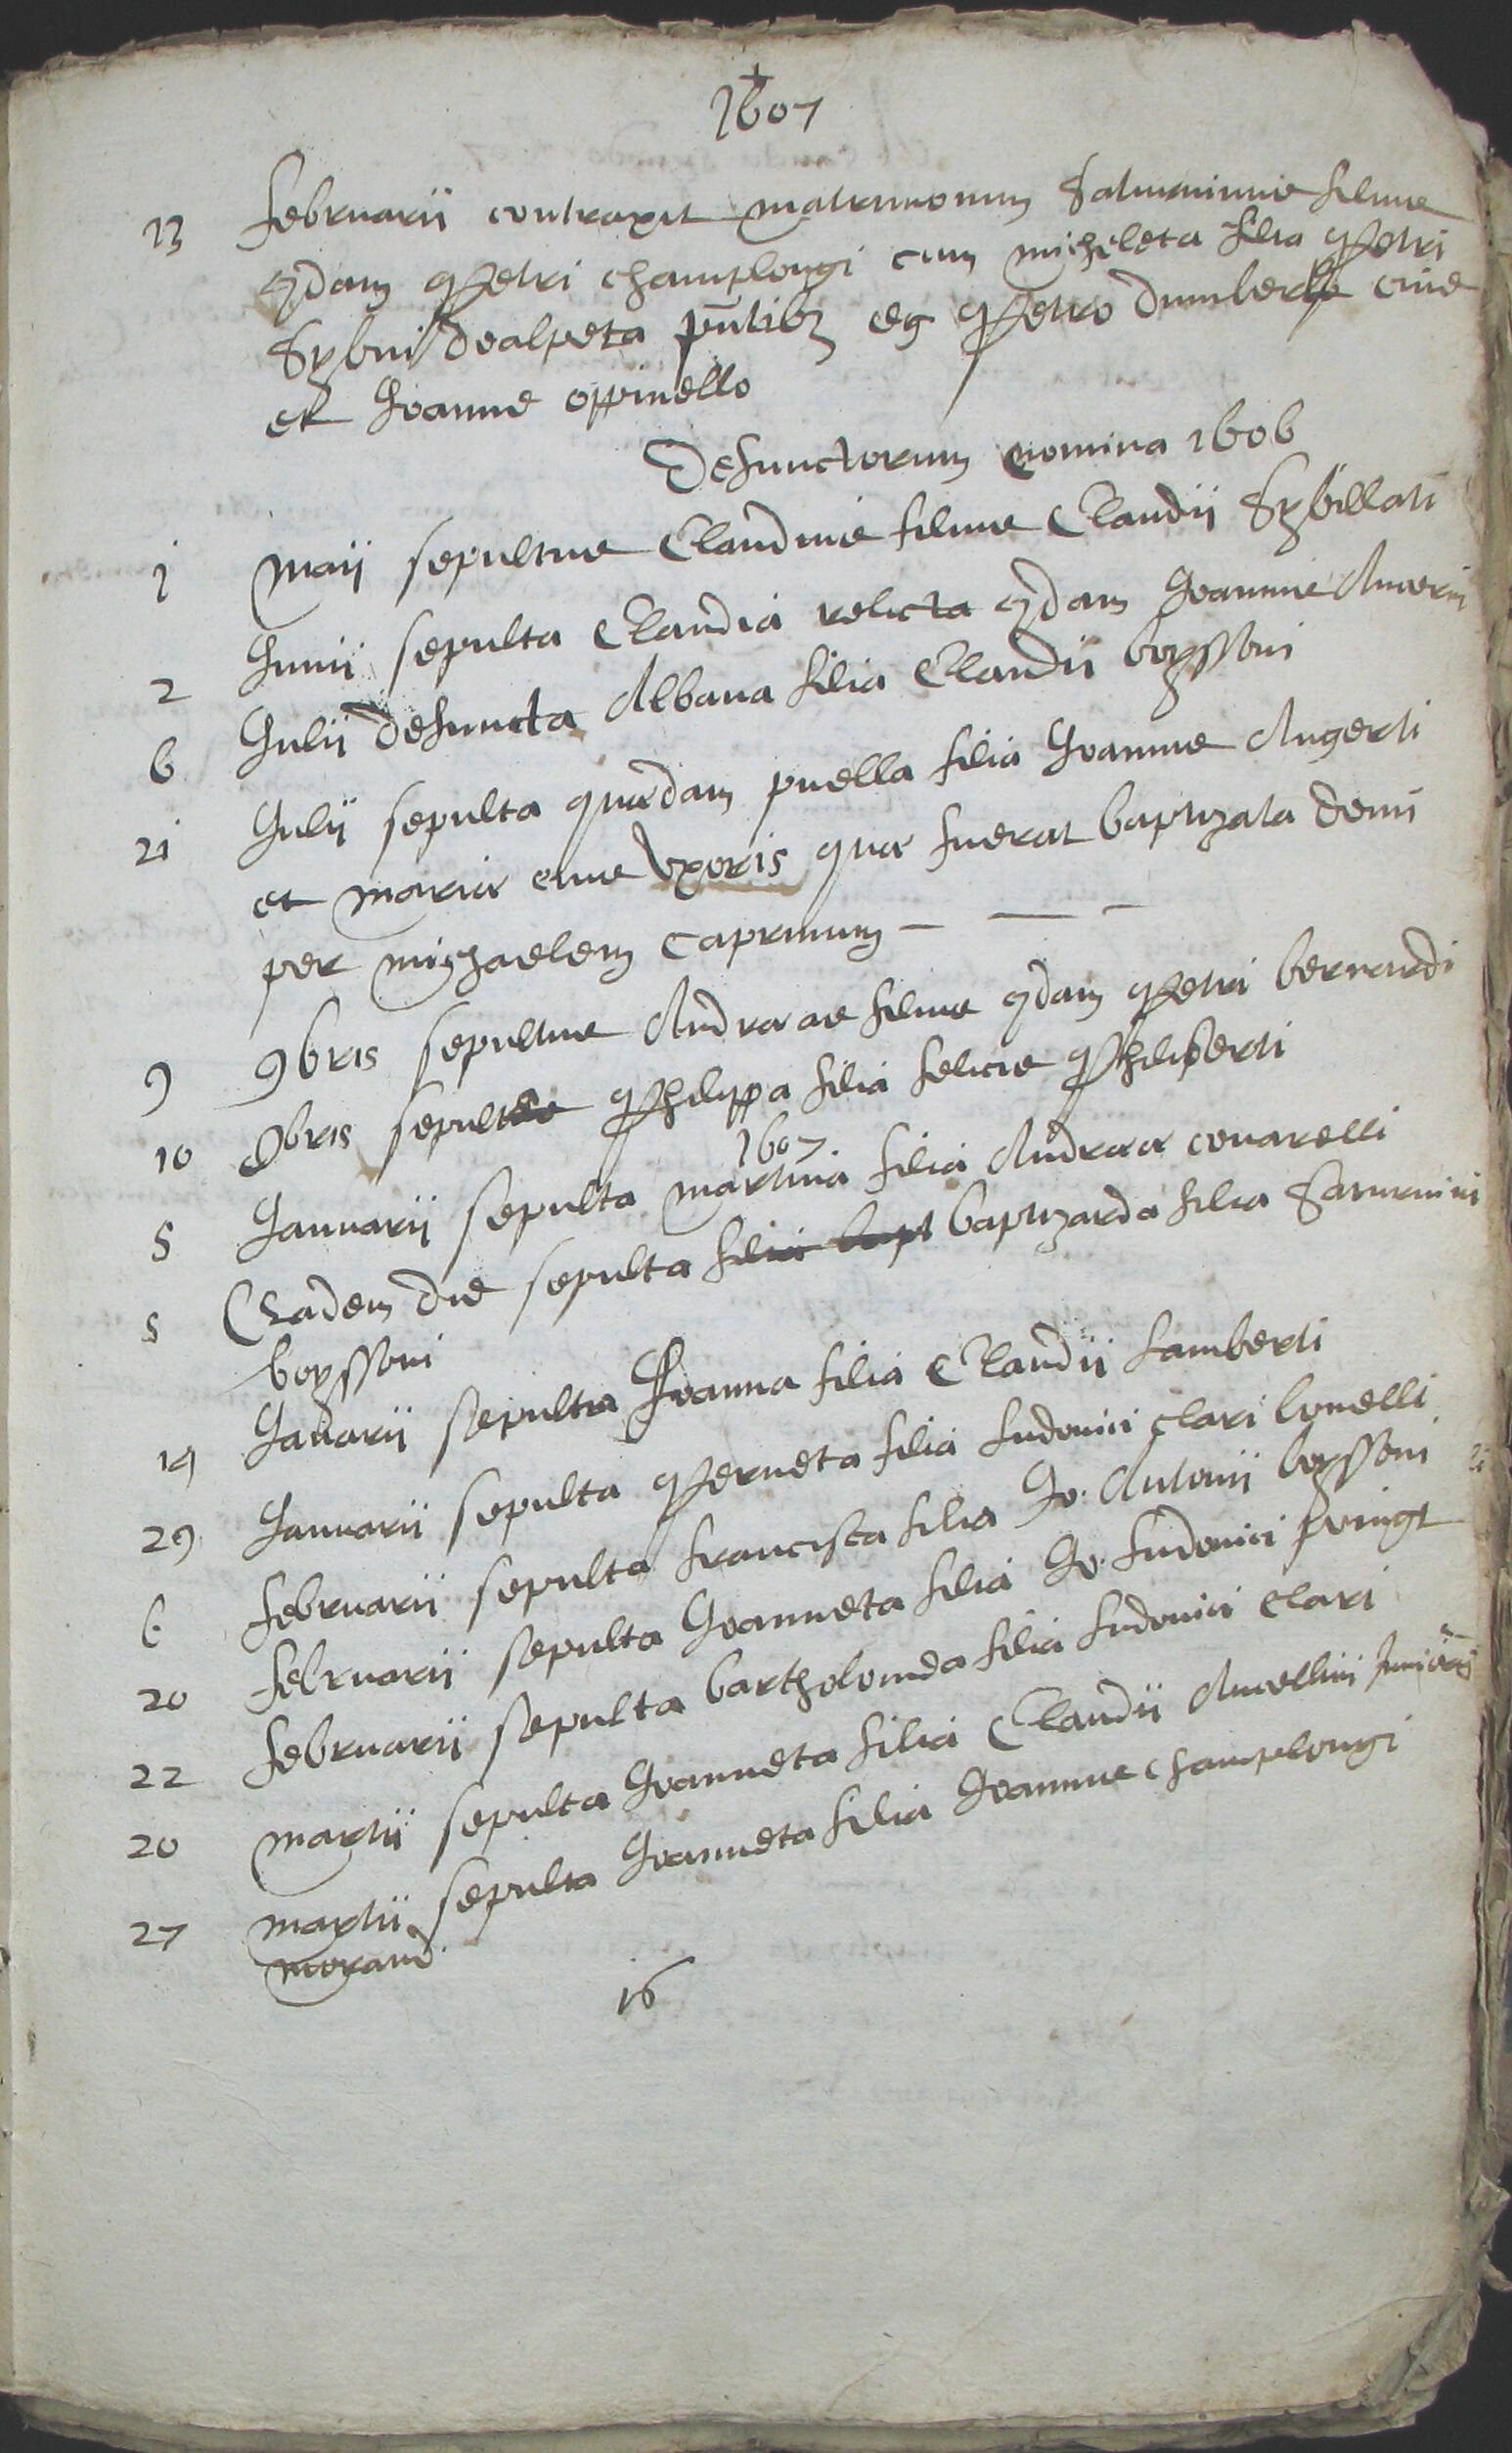 1607
13 februarii contraxit matrimonium Saturninus filius
qdam Petri champlongi cum micheleta filia Petri
dealpeta pntibz Petro
et Joanne oppinello
Defunctorum nomina 1606
1 maii sepultus Claudius filius Claudii Sybillati
2 Junii sepulta Claudia relicta qdam Joannis
6 Julii defuncta Albana filia Claudii boyssoni
21 Julii sepulta quædam puella filia Joannis Augerti
et mariæ eius uxoris quæ fuerat baptizata domi
per michaelem caprinum
9 9bris sepultus Andræas filius qdam Petri bernardi
10 sepulta Philippa filia felicis Philiberti
1607
5 Januarii sepulta martina filia Andreæ
5 Eadem die sepulta filia bapt baptizarda filia Saturnini
boyssoni
19 Januarii sepulta Joanna filia Claudii Lamberti
29 Januarii sepulta Perneta filia Ludovici clari bonelli
6 februarii sepulta francisca filia Jo. Antonii boyssoni
20 februarii sepulta Joanneta filia Jo. Ludovici
22 februarii sepulta bartholomea filia Ludovici clari
20 martii sepulta Joanneta filia Claudii Ancellini junioris
27 martii sepulta Joanneta filia Joannis champlongi
morand
16